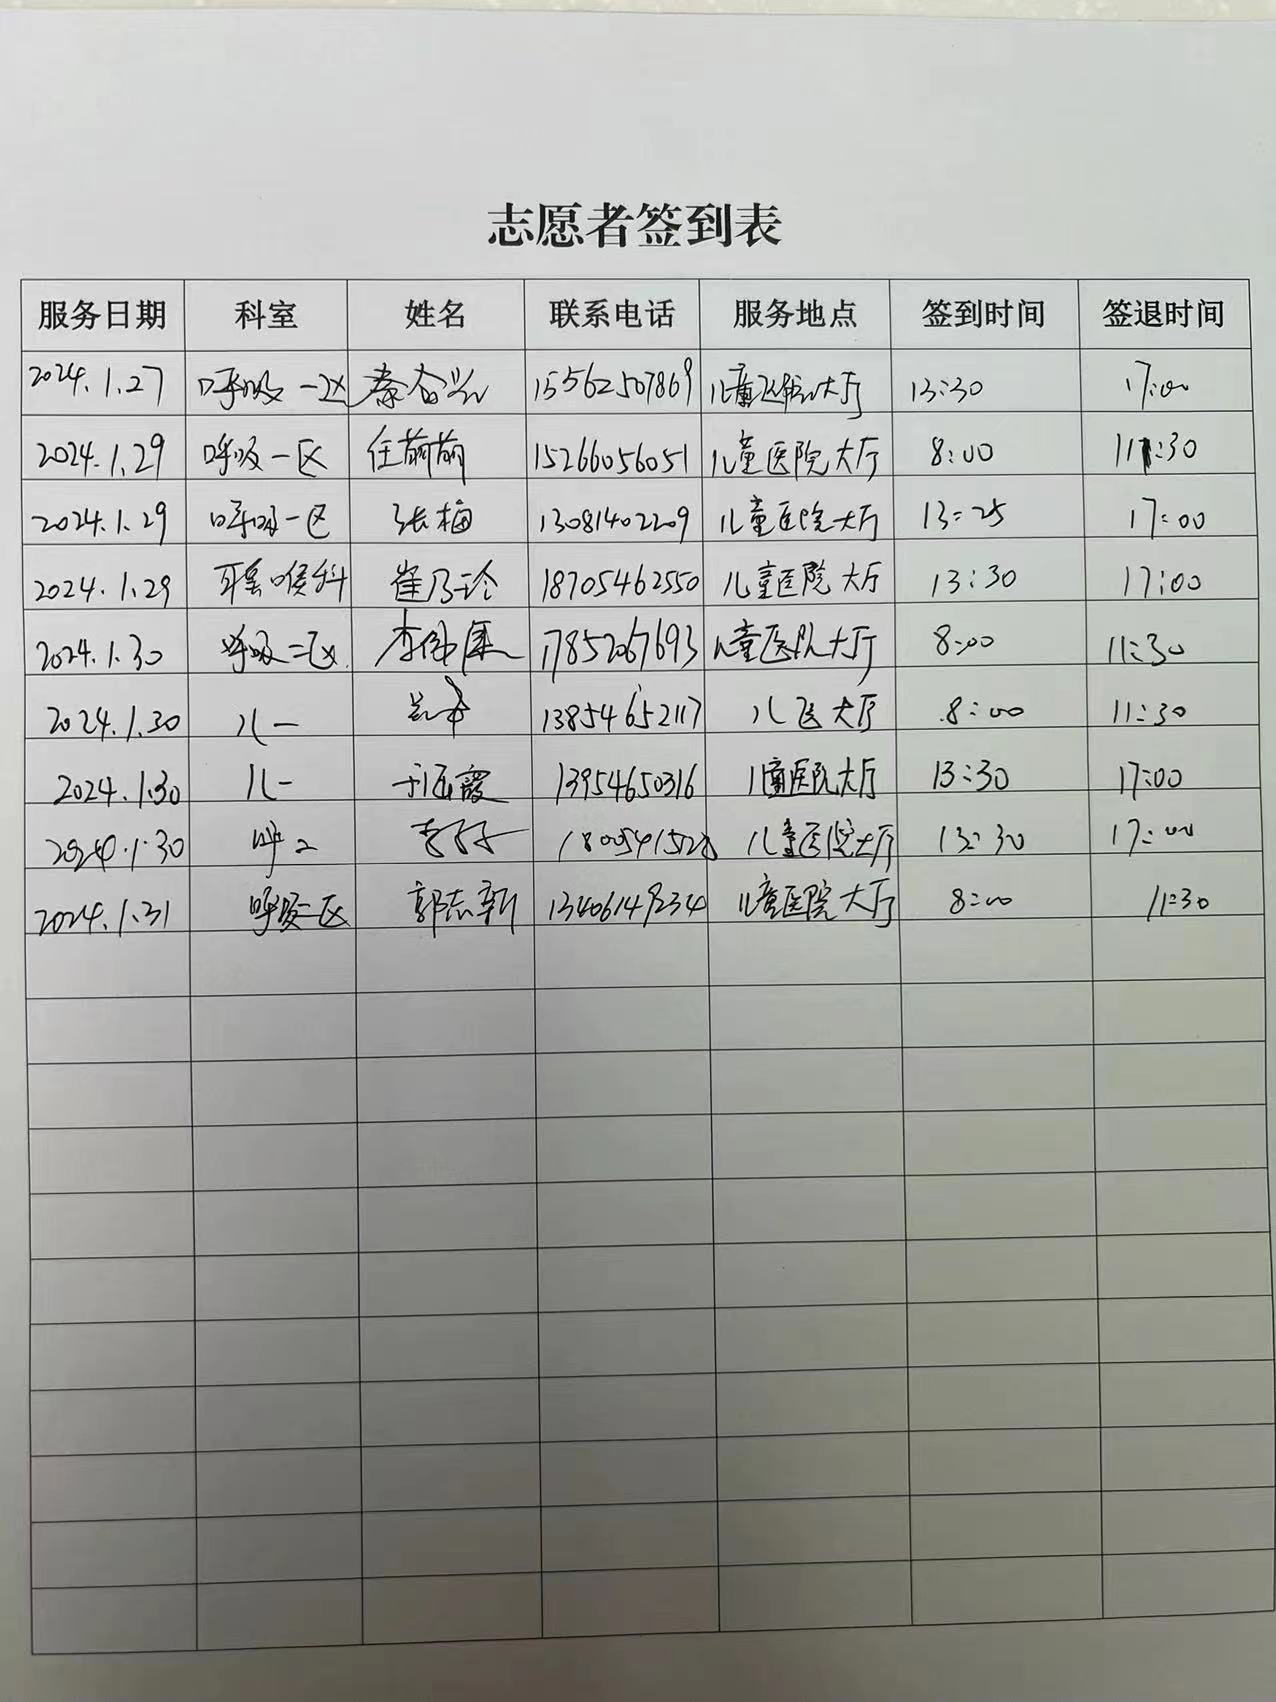 志愿者签到表
服务日期 科室 姓名 联系电话 服务地点 签到时间 签退时间
2024.1.27 呼吸一区 15562507869 儿童医院大厅 13:30 17:00
2024.1.29 呼吸一区 任萌萌 15266056051 儿童医院大厅 8:00 11:30
2024.1.29 呼吸一区 张梅 13081402209 儿童医院大厅 13:25 17:00
2024.1.29 耳鼻喉科 崔乃玲 18705462550 儿童医院大厅 13:30 17:00
2024.1.30 呼吸二区 17852067693 儿童医院大厅 8:00 11:30
2024.1.30 儿一 13854652117 儿医大厅 8:00 11:30
2024.1.30 儿一 13954650316 儿童医院大厅 13:30 17:00
2024.1.30 呼二 儿童医院大厅 13:30 17:00
2024.1.31 呼吸二区 郭志新 13406149234 儿童医院大厅 8:00 11:30